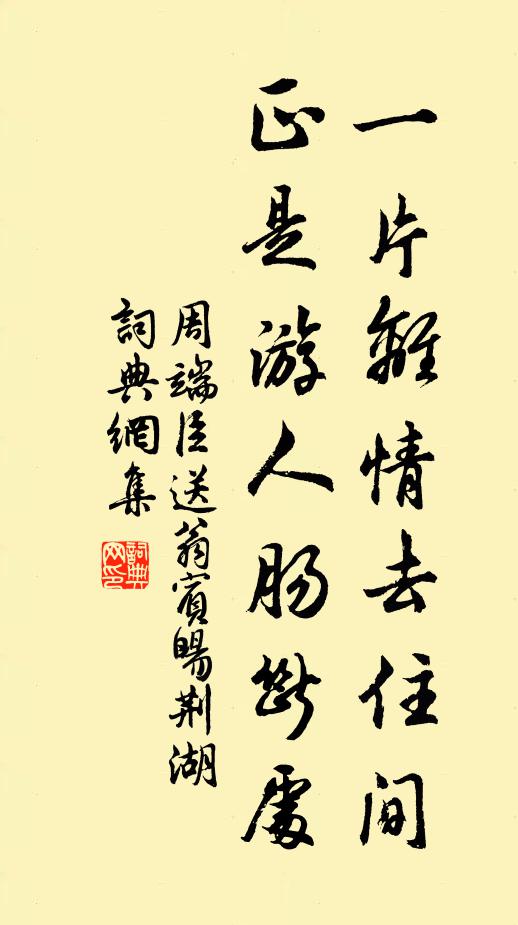 一片離情去住間
正是游人肠斷處
周端臣送翁賓暘荆湖
詞典網集
詞典網印